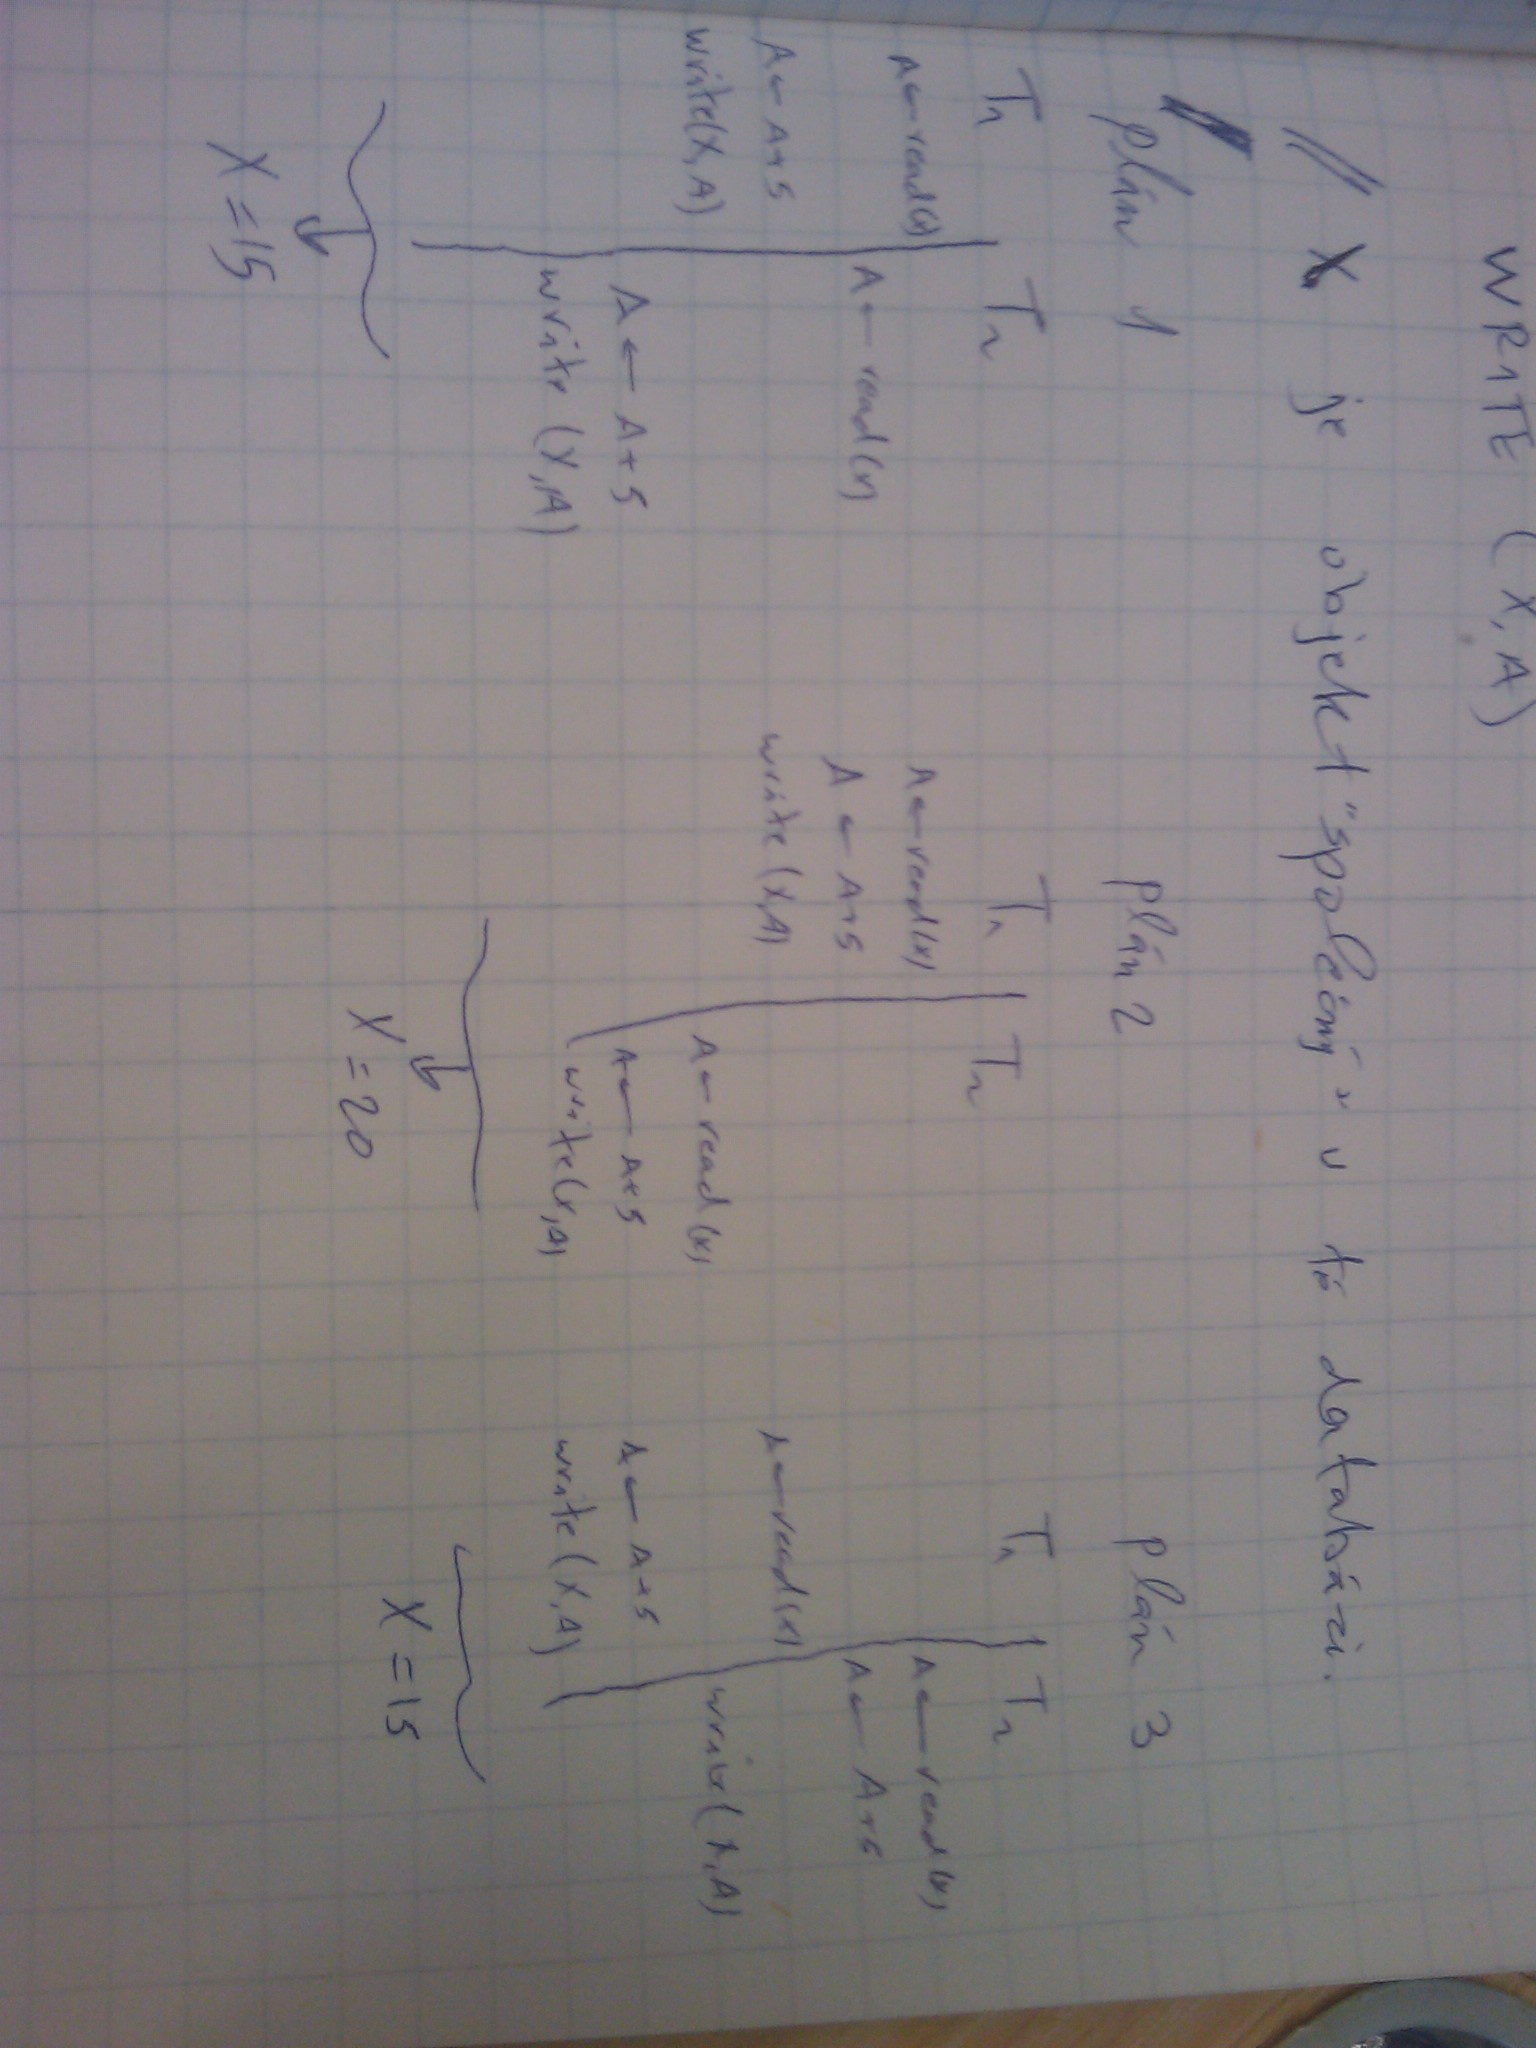 WRITE (X, A)
// X je objekt "společný" v té databázi.
plán 1
T1 T2
A ← read(x)
A ← read(x)
A ← A+5
write(X, A)
A ← A+5
write (X, A)
X = 15
plán 2
T1 T2
A ← read(x)
A ← A+5
write (X, A)
A ← read(x)
A ← A+5
write(x, A)
X = 20
plán 3
T1 T2
A ← read(x)
A ← A+5
A ← read(x)
write(X, A)
A ← A+5
write (X, A)
X = 15